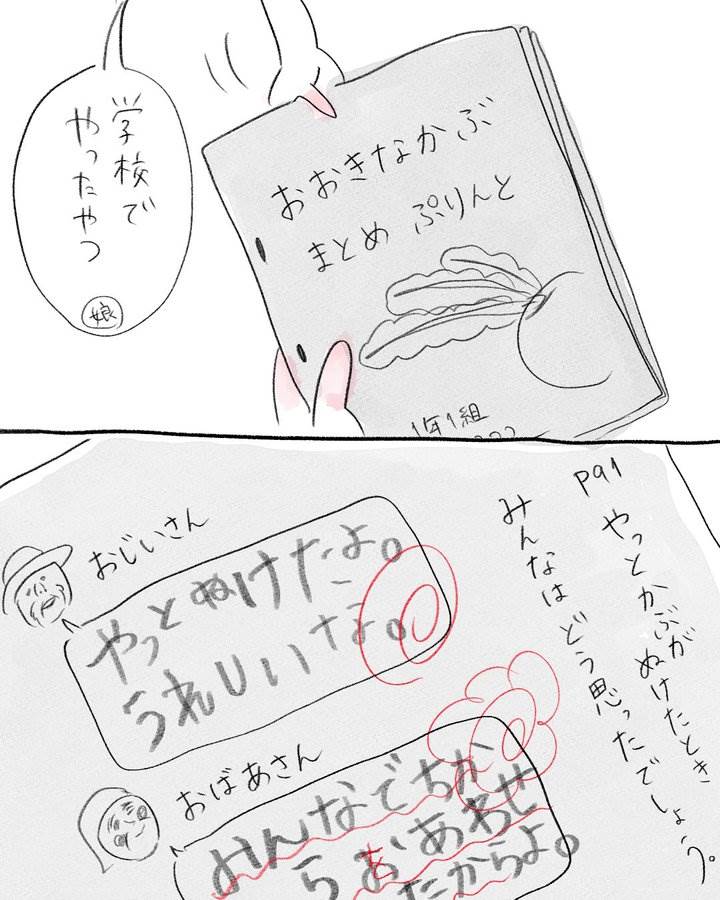 学校で
やったやつ
娘
おおきなかぶ
まとめ ぷりんと
1年1組
P91 やっとかぶが
ぬけたとき
みんなはどう思ったでしょう。
おじいさん
やっとぬけたよ。
うれしいなよ。
おばあさん
みんなでちか
らをあわせ
たからよ。